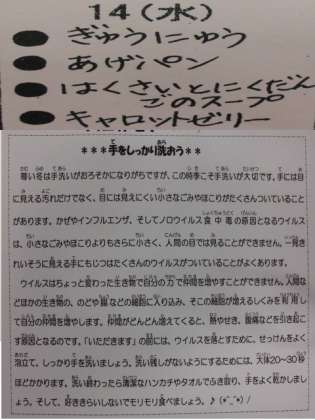 14(水)
●ぎゅうにゅう
●あげパン
●はくさいとにくだん
ごのスープ
●キャロットゼリー
***手をしっかり洗おう**
寒い冬は手洗いがおろそかになりがちですが、この時季こそ手洗いが大切です。手には目
に見える汚れだけでなく、目には見えにくい小さなごみやほこりがたくさんついていること
があります。かぜやインフルエンザ、そしてノロウイルス食中毒の原因となるウイルス
は、小さなごみやほこりよりもさらに小さく、人間の目では見ることができません。一見き
れいそうに見える手にもじつはたくさんのウイルスがついていることがよくあります。
ウイルスはちょっと変わった生き物で自分の力で仲間を増やすことができません。人間な
どほかの生き物の、のどや腸などの細胞に入り込み、そこの細胞が増えるしくみを利用し
て自分の仲間を増やします。仲間がどんどん増えてくると、熱やせき、腹痛などを引き起こ
す原因となるのです。「いただきます」の前には、ウイルスを落とすために、せっけんをよく
泡立て、しっかり手を洗いましょう。洗い残しがないようにするためには、大体20~30秒
ほどかかります。洗い終わったら清潔なハンカチやタオルでふき取り、手をよく乾かしまし
ょう。そして、好ききらいしないでモリモリ食べましょう。♪(*^_^*)/